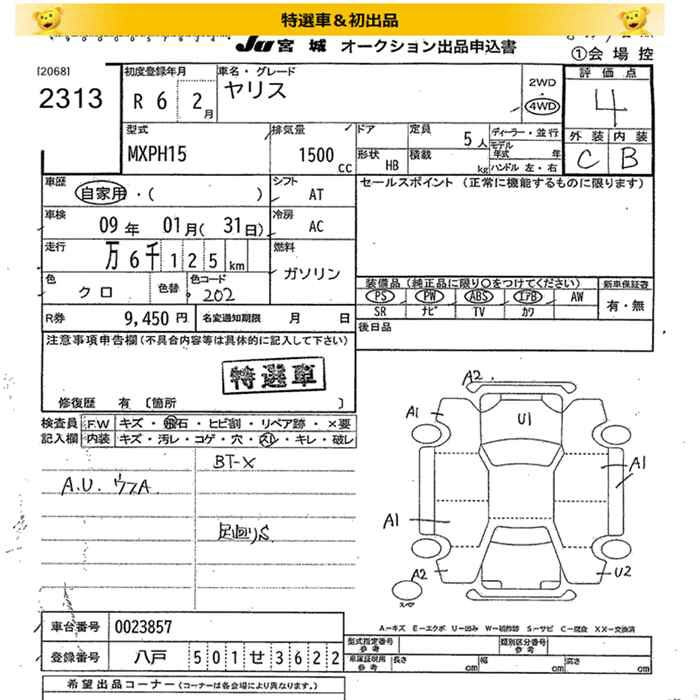 特選車＆初出品
Ju 宮城 オークション出品申込書
①会場控
[2068]
2313
初度登録年月 R6 2月
車名・グレード ヤリス
2WD
4WD
評価点 4
型式 MXPH15
排気量 1500cc
ドア
定員 5人
ディーラー・並行
形状 HB
積載 kg
モデル年式 年
ハンドル 左・右
外装 内装
C B
車歴 自家用・( )
シフト AT
セールスポイント (正常に機能するものに限ります)
車検 09年 01月(31日)
冷房 AC
走行 万6千125km
燃料 ガソリン
色 クロ
色替
色コード 202
装備品 (純正品に限り○をつけてください)
新車保証書
PS PW ABS エアB AW
有・無
SR ナビ TV カワ
R券 9,450円
名変通知期限 月 日
後日品
注意事項申告欄(不具合内容等は具体的に記入して下さい)
特選車
修復歴 有 [箇所 ]
検査員記入欄
F.W キズ・飛石・ヒビ割・リペア跡・×要
内装 キズ・汚レ・コゲ・穴・スレ・キレ・破レ
BT-X
A.U.
足回りS
A2
A1
U1
A1
A1
A2
U2
スペア
A−キズ E−エクボ U−凹み W−補修跡 S−サビ C−腐食 XX−交換済
車台番号 0023857
型式指定番号 参考
類別区分番号 参考
登録番号 八戸 501せ3622
車庫証明用 参考 長さ cm 幅 cm 高さ cm
希望出品コーナー(コーナーは各会場により異なります。)